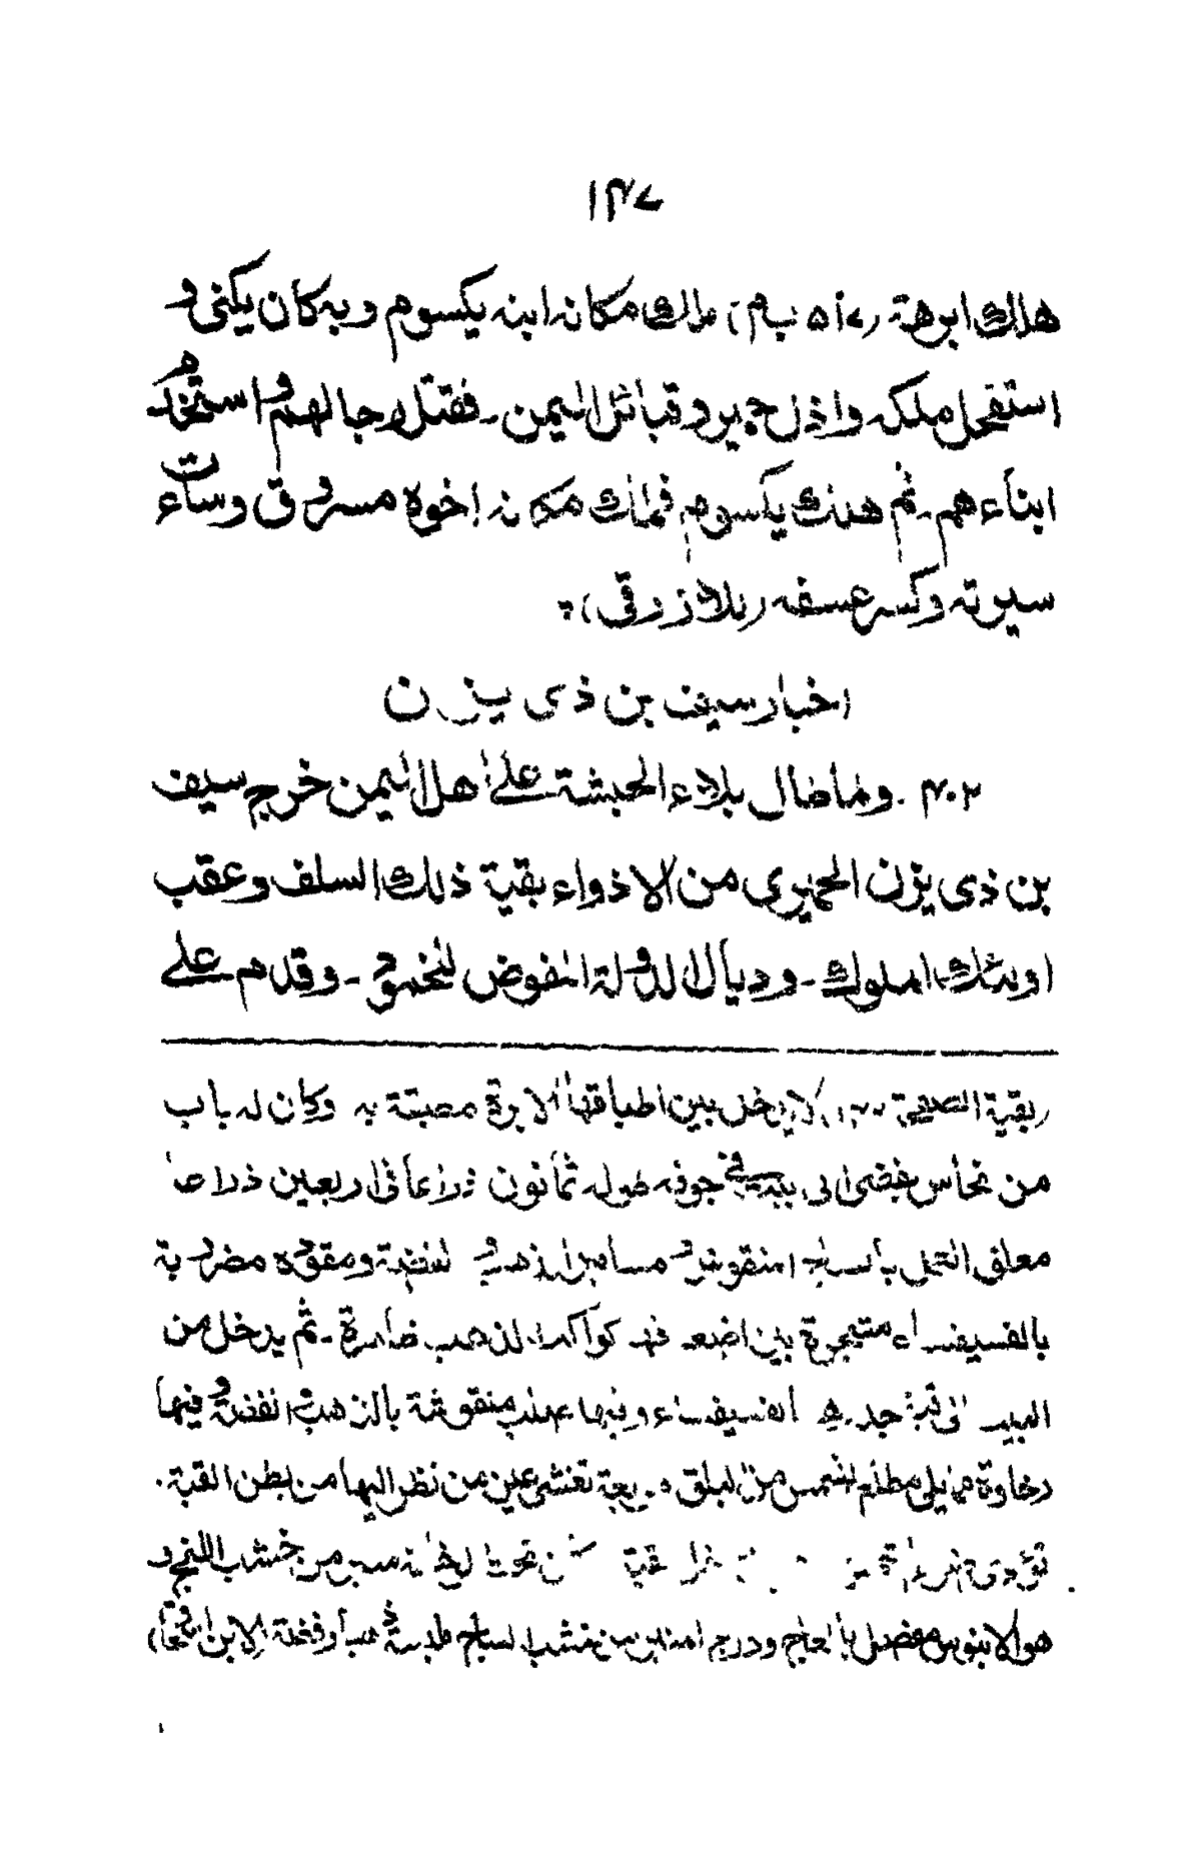 ١٣٧
هلك ابرهة (٥٧١ ب م) ملك مكانه ابنه يكسوم وبه كان يكنى و
استفحل ملكه واذل حمير وقبائل اليمن ـ فقتل رجالهم واستخدم
ابناءهم ـ ثم هلك يكسوم فملك مكانه اخوه مسروق وساءت
سيرته وكسر عسفه (للازرقى)
اخبار سيف بن ذى يزن
٤٠٢ . ولما طال بلاء الحبشة على اهل اليمن خرج سيف
بن ذى يزن الحميرى من الاذواء بقية ذلك السلف وعقب
اولئك الملوك ـ وديال الدولة المفوض للخمود ـ وقدم على
(بقية الصفحة ١٣٦) لا يدخل بين اطباقها الابرة مصبتة به وكان له باب
من نحاس جوفه طوله ثمانون ذراعا فى اربعين ذراعا
معلق العمل بالساج المنقوش و مسامير الذهب و الفضة ومقوده مضروبة
بالفسيفساء مشجرة بين اضعافه كواكب الذهب ظاهرة ـ ثم يدخل من
البيت الى قبة الفسيفساء وفيها صلب منقوشة بالذهب والفضة وفيها
رخاوة مما يلى مطلع الشمس من البلق مربعة تغشى عين من نظر اليها من بطن القبة .
تؤدى قبة من تحت الرخامة من خشب اللبخ و
هو الابنوس مفصل بالعاج ودرج المنبر من خشب الساج ملبسة ذهبا وفضة (لابن